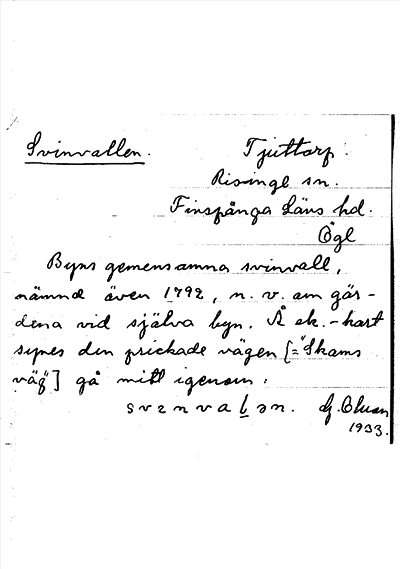 Svinvallen. Tjuttorp.
Risinge sn.
Finspånga Läns hd.
Ögl
Byns gemensamma svinvall,
nämnd även 1792, n. v. om går-
dena vid själva byn. Å ek.-kart
synes den prickade vägen [="Skams
väg"] gå mitt igenom:
svenvaḷən. G.
1933.